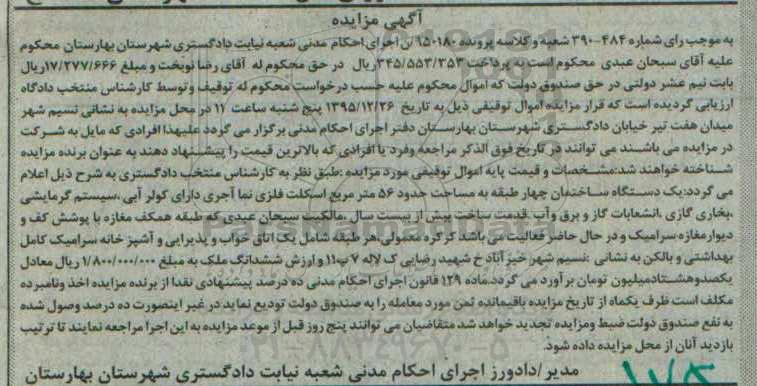 آگهی مزایده
به موجب رای شماره ۴۸۴-۳۹۰ شعبه و کلاسه پرونده ۹۵۰۱۸۰ اجرای احکام مدنی شعبه نیابت دادگستری شهرستان بهارستان محکوم
علیه آقای سبحان عبدی محکوم است به پرداخت ۳۴۵/۵۵۳/۳۵۳ریال در حق محکوم له آقای رضا نوبخت و مبلغ ۱۷/۲۷۷/۶۶۶ریال
بابت نیم عشر دولتی در حق صندوق دولت که اموال محکوم علیه حسب درخواست محکوم له توقیف و توسط کارشناس منتخب دادگاه
ارزیابی گردیده است که قرار مزایده اموال توقیفی ذیل به تاریخ ۱۳۹۵/۱۲/۲۶ پنج شنبه ساعت ۱۱ در محل مزایده به نشانی نسیم شهر
میدان هفت تیر خیابان دادگستری شهرستان بهارستان دفتر اجرای احکام مدنی برگزار می گردد علیهذا افرادی که مایل به شرکت
در مزایده می باشند می توانند در تاریخ فوق الذکر مراجعه وفرد یا افرادی که بالاترین قیمت را پیشنهاد دهند به عنوان برنده مزایده
شناخته خواهند شد:مشخصات و قیمت پایه اموال توقیفی مورد مزایده :طبق نظر به کارشناس منتخب دادگستری به شرح ذیل اعلام
می گردد:یک دستگاه ساختمان چهار طبقه به مساحت حدود ۵۶ متر مربع اسکلت فلزی نما آجری دارای کولر آبی ،سیستم گرمایشی
،بخاری گازی ،انشعابات گاز و برق وآب ،قدمت ساخت بیش از بیست سال ،مالکیت سبحان عبدی که طبقه همکف مغازه با پوشش کف و
دیوار مغازه سرامیک و در حال حاضر فعالیت می باشد کرکره معمولی،هر طبقه شامل یک اتاق خواب و پذیرایی و آشپز خانه سرامیک کامل
بهداشتی و بالکن به نشانی :نسیم شهر خیر آباد خ شهید رضایی ک لاله ۷ پ۱۱ و ارزش ششدانگ ملک به مبلغ ۱/۸۰۰/۰۰۰/۰۰۰ ریال معادل
یکصدوهشتادمیلیون تومان برآورد می گردد.ماده ۱۲۹ قانون اجرای احکام مدنی ده درصد پیشنهادی نقدا از برنده مزایده اخذ ونامبرده
مکلف است ظرف یکماه از تاریخ مزایده باقیمانده ثمن مورد معامله را به صندوق دولت تودیع نماید در غیر اینصورت ده درصد وصول شده
به نفع صندوق دولت ضبط ومزایده تجدید خواهد شد.متقاضیان می توانند پنج روز قبل از موعد مزایده به این اجرا مراجعه نمایند تا ترتیب
بازدید آنان از محل مزایده داده شود.
مدیر/دادورز اجرای احکام مدنی شعبه نیابت دادگستری شهرستان بهارستان